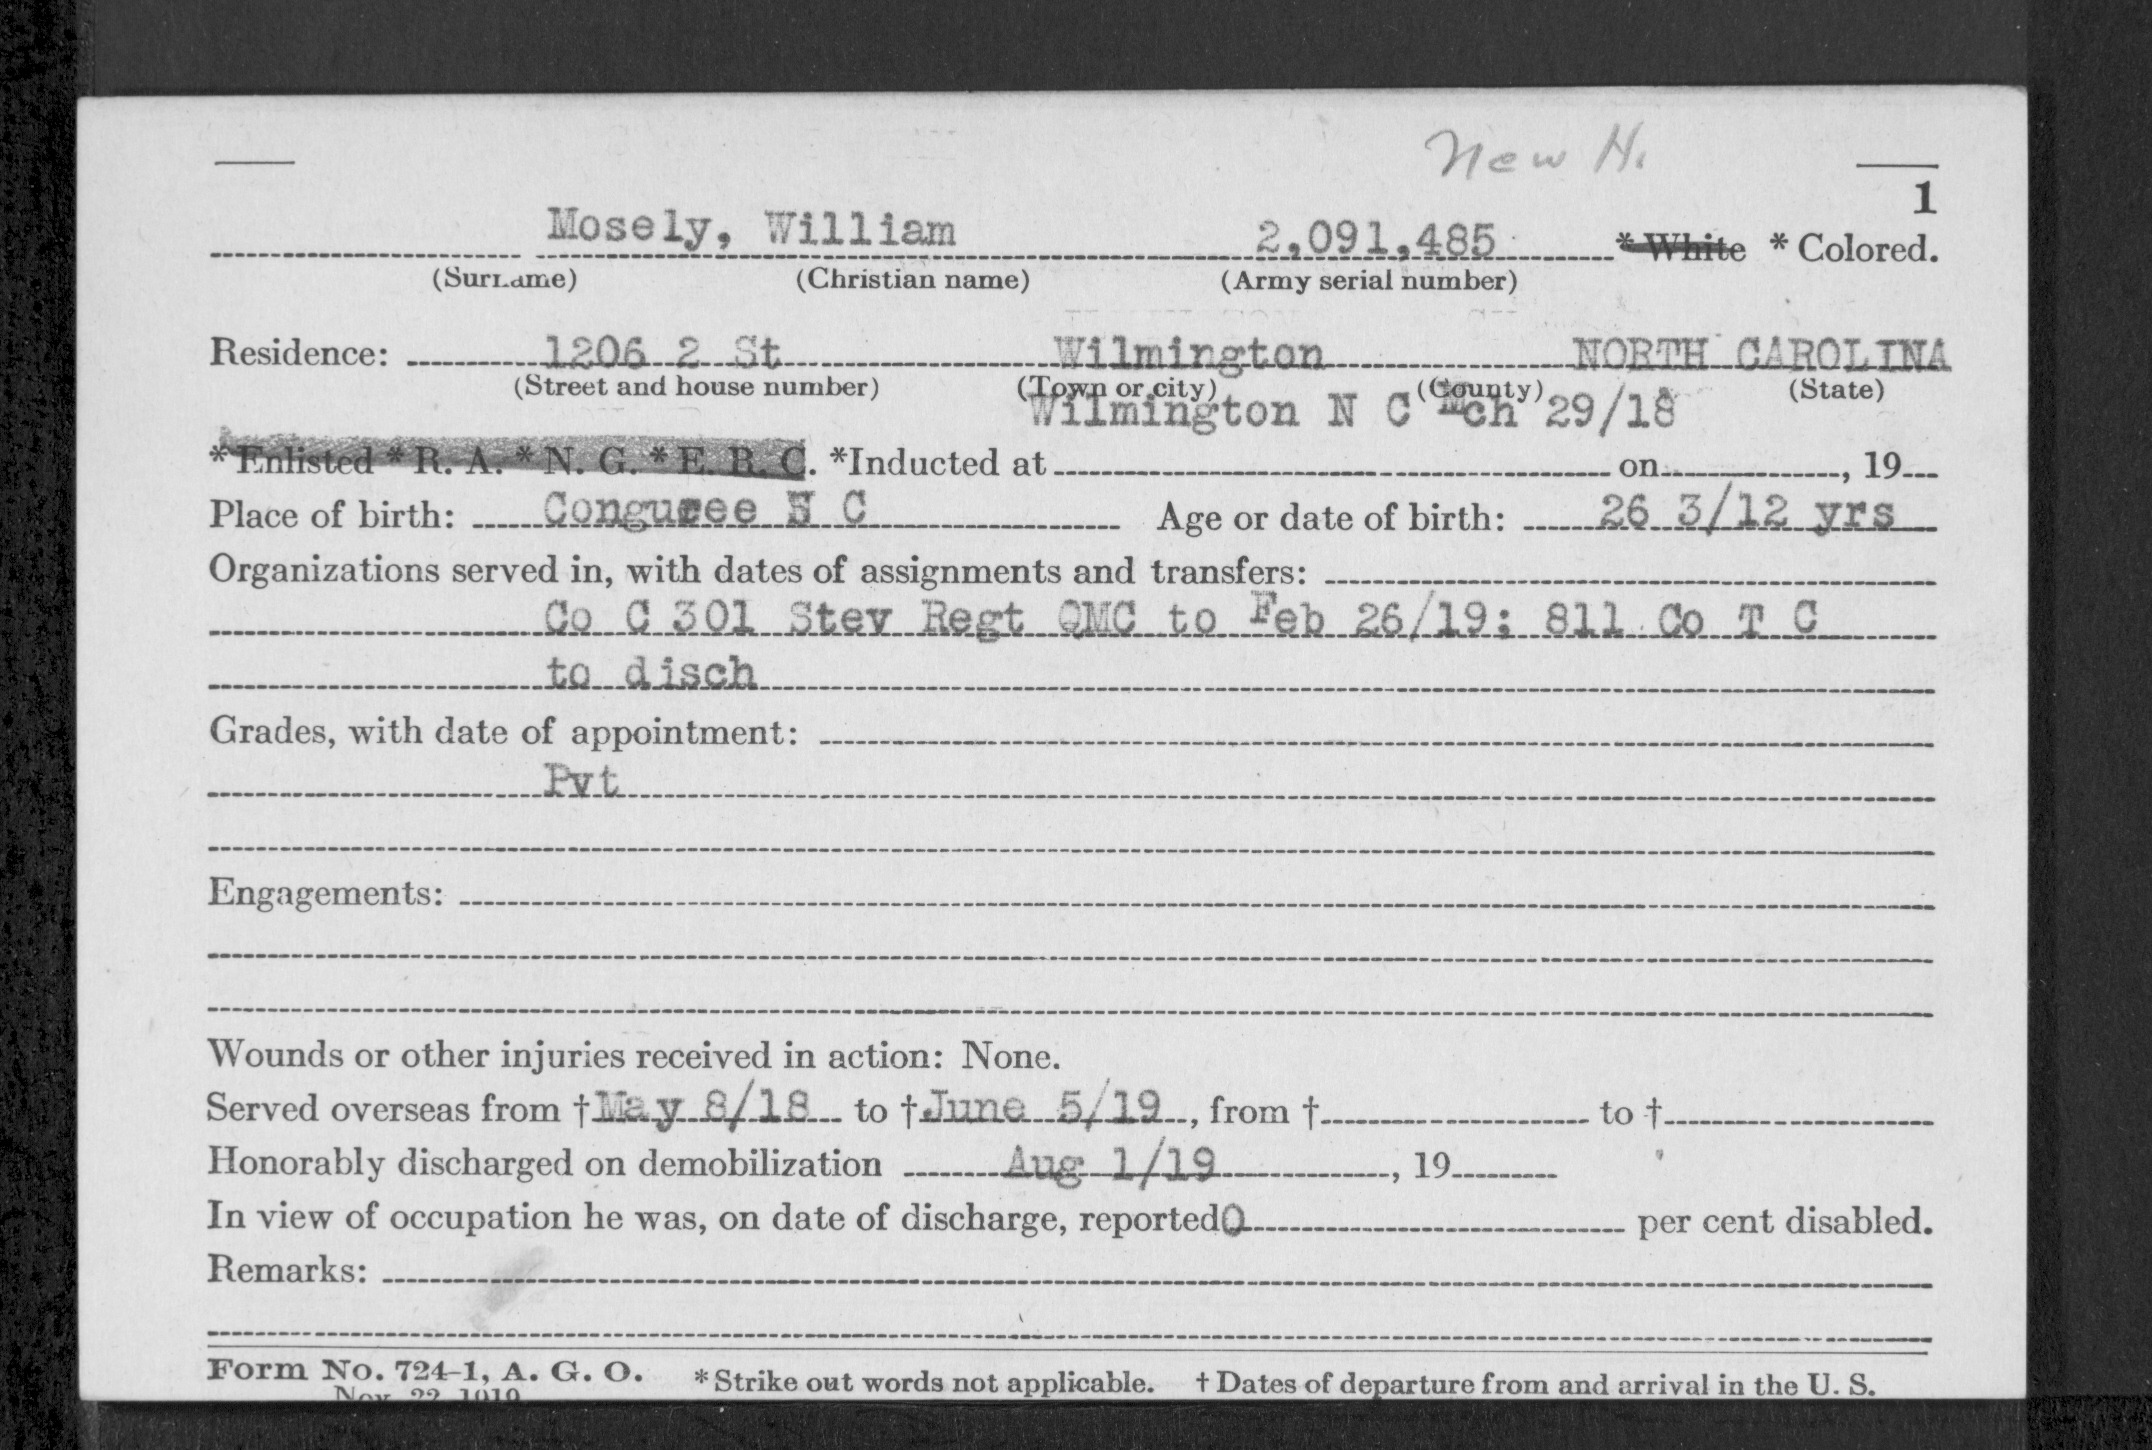 New H.
1
Mosely, William 2,091,485 * White * Colored.
(Surname) (Christian name) (Army serial number)
Residence: 1206 2 St Wilmington NORTH CAROLINA
(Street and house number) (Town or city) (County) (State)
Wilmington N C Mch 29/18
* Enlisted * R. A. * N. G. * E. R. C. *Inducted at on , 19
Place of birth: Conguree S C Age or date of birth: 26 3/12 yrs
Organizations served in, with dates of assignments and transfers:
Co C 301 Stev Regt QMC to Feb 26/19; 811 Co T C
to disch
Grades, with date of appointment:
Pvt
Engagements:
Wounds or other injuries received in action: None.
Served overseas from † May 8/18 to † June 5/19, from † to †
Honorably discharged on demobilization Aug 1/19, 19
In view of occupation he was, on date of discharge, reported 0 per cent disabled.
Remarks:
Form No. 724-1, A. G. O. * Strike out words not applicable. † Dates of departure from and arrival in the U. S.
Nov. 22, 1919